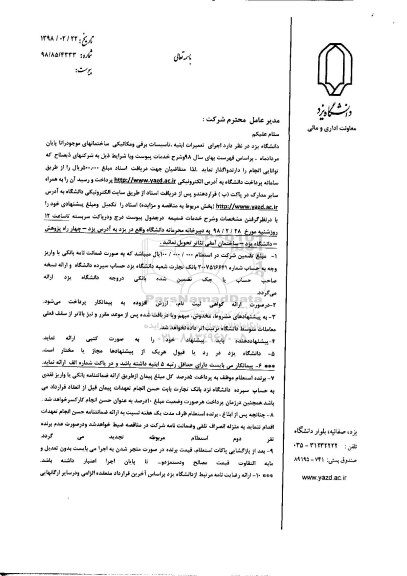 تاریخ: ۱۳۹۸ / ۰۲ / ۲۲
شماره: ۹۸/۸۵/۴۳۳۳
پیوست:
باسمه تعالی
دانشگاه یزد
معاونت اداری و مالی
مدیر عامل محترم شرکت :
سلام علیکم
دانشگاه یزد در نظر دارد اجرای تعمیرات ابنیه ،تاسیسات برقی ومکانیکی ساختمانهای موجودراتا پایان
مردادماه ، براساس فهرست بهای سال ۹۸وشرح خدمات پیوست وبا شرایط ذیل به شرکتهای ذیصلاح که
توانایی انجام را دارندواگذار نماید .لذا متقاضیان جهت دریافت اسناد مبلغ ۵۰۰٫۰۰۰ریال را از طریق
سامانه پرداخت دانشگاه به آدرس الکترونیکی http://www.yazd.ac.ir پرداخت و رسید آن را به همراه
سایر مدارک در پاکت (ب ) قراردهندو پس از دریافت اسناد از طریق سایت الکترونیکی دانشگاه به آدرس
http://www.yazd.ac.ir (بخش مربوط به مناقصه و مزایده) اسناد را تکمیل ومبلغ پیشنهادی خود را
با درنظرگرفتن مشخصات وشرح خدمات ضمیمه درجدول پیوست درج ودرپاکت سربسته تاساعت ۱۲
روزشنبه مورخ ۹۸ / ۲ / ۲۸ به دبیرخانه محرمانه دانشگاه واقع در یزد به آدرس یزد – چهار راه پژوهش
– دانشگاه یزد – ساختمان آملی تئاتر تحویل نمائید .
۱- مبلغ تضمین شرکت در استعلام ۱۰۰/۰۰۰/۰۰۰ریال میباشد که به صورت ضمانت نامه بانکی یا واریز
وجه به حساب شماره ۲۰۰۷۵۱۶۶۴۱ بانک تجارت شعبه دانشگاه یزد حساب سپرده دانشگاه و ارائه نسخه
صاحب حساب یا چک تضمین شده بانکی دروجه دانشگاه یزد ارائه
می‌گردد.
۲-درصورت ارائه گواهی ثبت نام، ارزش افزوده به پیمانکار پرداخت می‌شود.
۳- به پیشنهادهای مشروط، مخدوش، مبهم ویا دریافت شده پس از موعد مقرر و نیز بالاتر از سقف فعلی
معاملات متوسط دانشگاه ترتیب اثر داده نخواهد شد.
۴-پیشنهاددهنده باید پیشنهاد خود را به صورت کتبی ارائه نماید.
۵- دانشگاه یزد در رد یا قبول هریک از پیشنهادها مجاز یا مختار است.
*** ۶- پیمانکار می بایست دارای حداقل رتبه ۵ ابنیه داشته باشد و در پاکت شماره الف ارائه نماید.
۷- برنده استعلام موظف به پرداخت ۵درصد کل مبلغ پیمان ازطریق ارائه ضمانتنامه بانکی یا واریز نقدی
به حساب سپرده دانشگاه نزد بانک تجارت بابت حسن انجام تعهدات پیمان قبل از انعقاد قرارداد می
باشد همچنین درزمان پرداخت هرصورت وضعیت مبلغ ۱۰درصد به عنوان حسن انجام کارکسرخواهد شد.
۸- چنانچه پس از ابلاغ ، برنده استعلام ظرف مدت یک هفته نسبت به ارائه ضمانتنامه حسن انجام تعهدات
اقدام ننماید به منزله انصراف تلقی وضمانت نامه شرکت در مناقصه ضبط خواهدشد ودرصورت عدم برنده
نفر دوم استعلام مربوطه تجدید می گردد.
۹- بعد از بازگشایی پاکات استعلام، قیمت برنده در صورت منجر شدن به اجرا می بایست بدون تعدیل و
مابه التفاوت قیمت مصالح ودستمزدو... تا پایان اجرا اعتبار داشته باشد.
*** ۱۰- ارائه رضایت نامه مرتبط ازدانشگاه یزد براساس آخرین قرارداد منعقده الزامی ودرسایر ارگانهایی
یزد، صفائیه، بلوار دانشگاه
تلفن: ۳۱۲۳۲۲۲۲ - ۰۳۵
صندوق پستی: ۷۴۱ - ۸۹۱۹۵
www.yazd.ac.ir